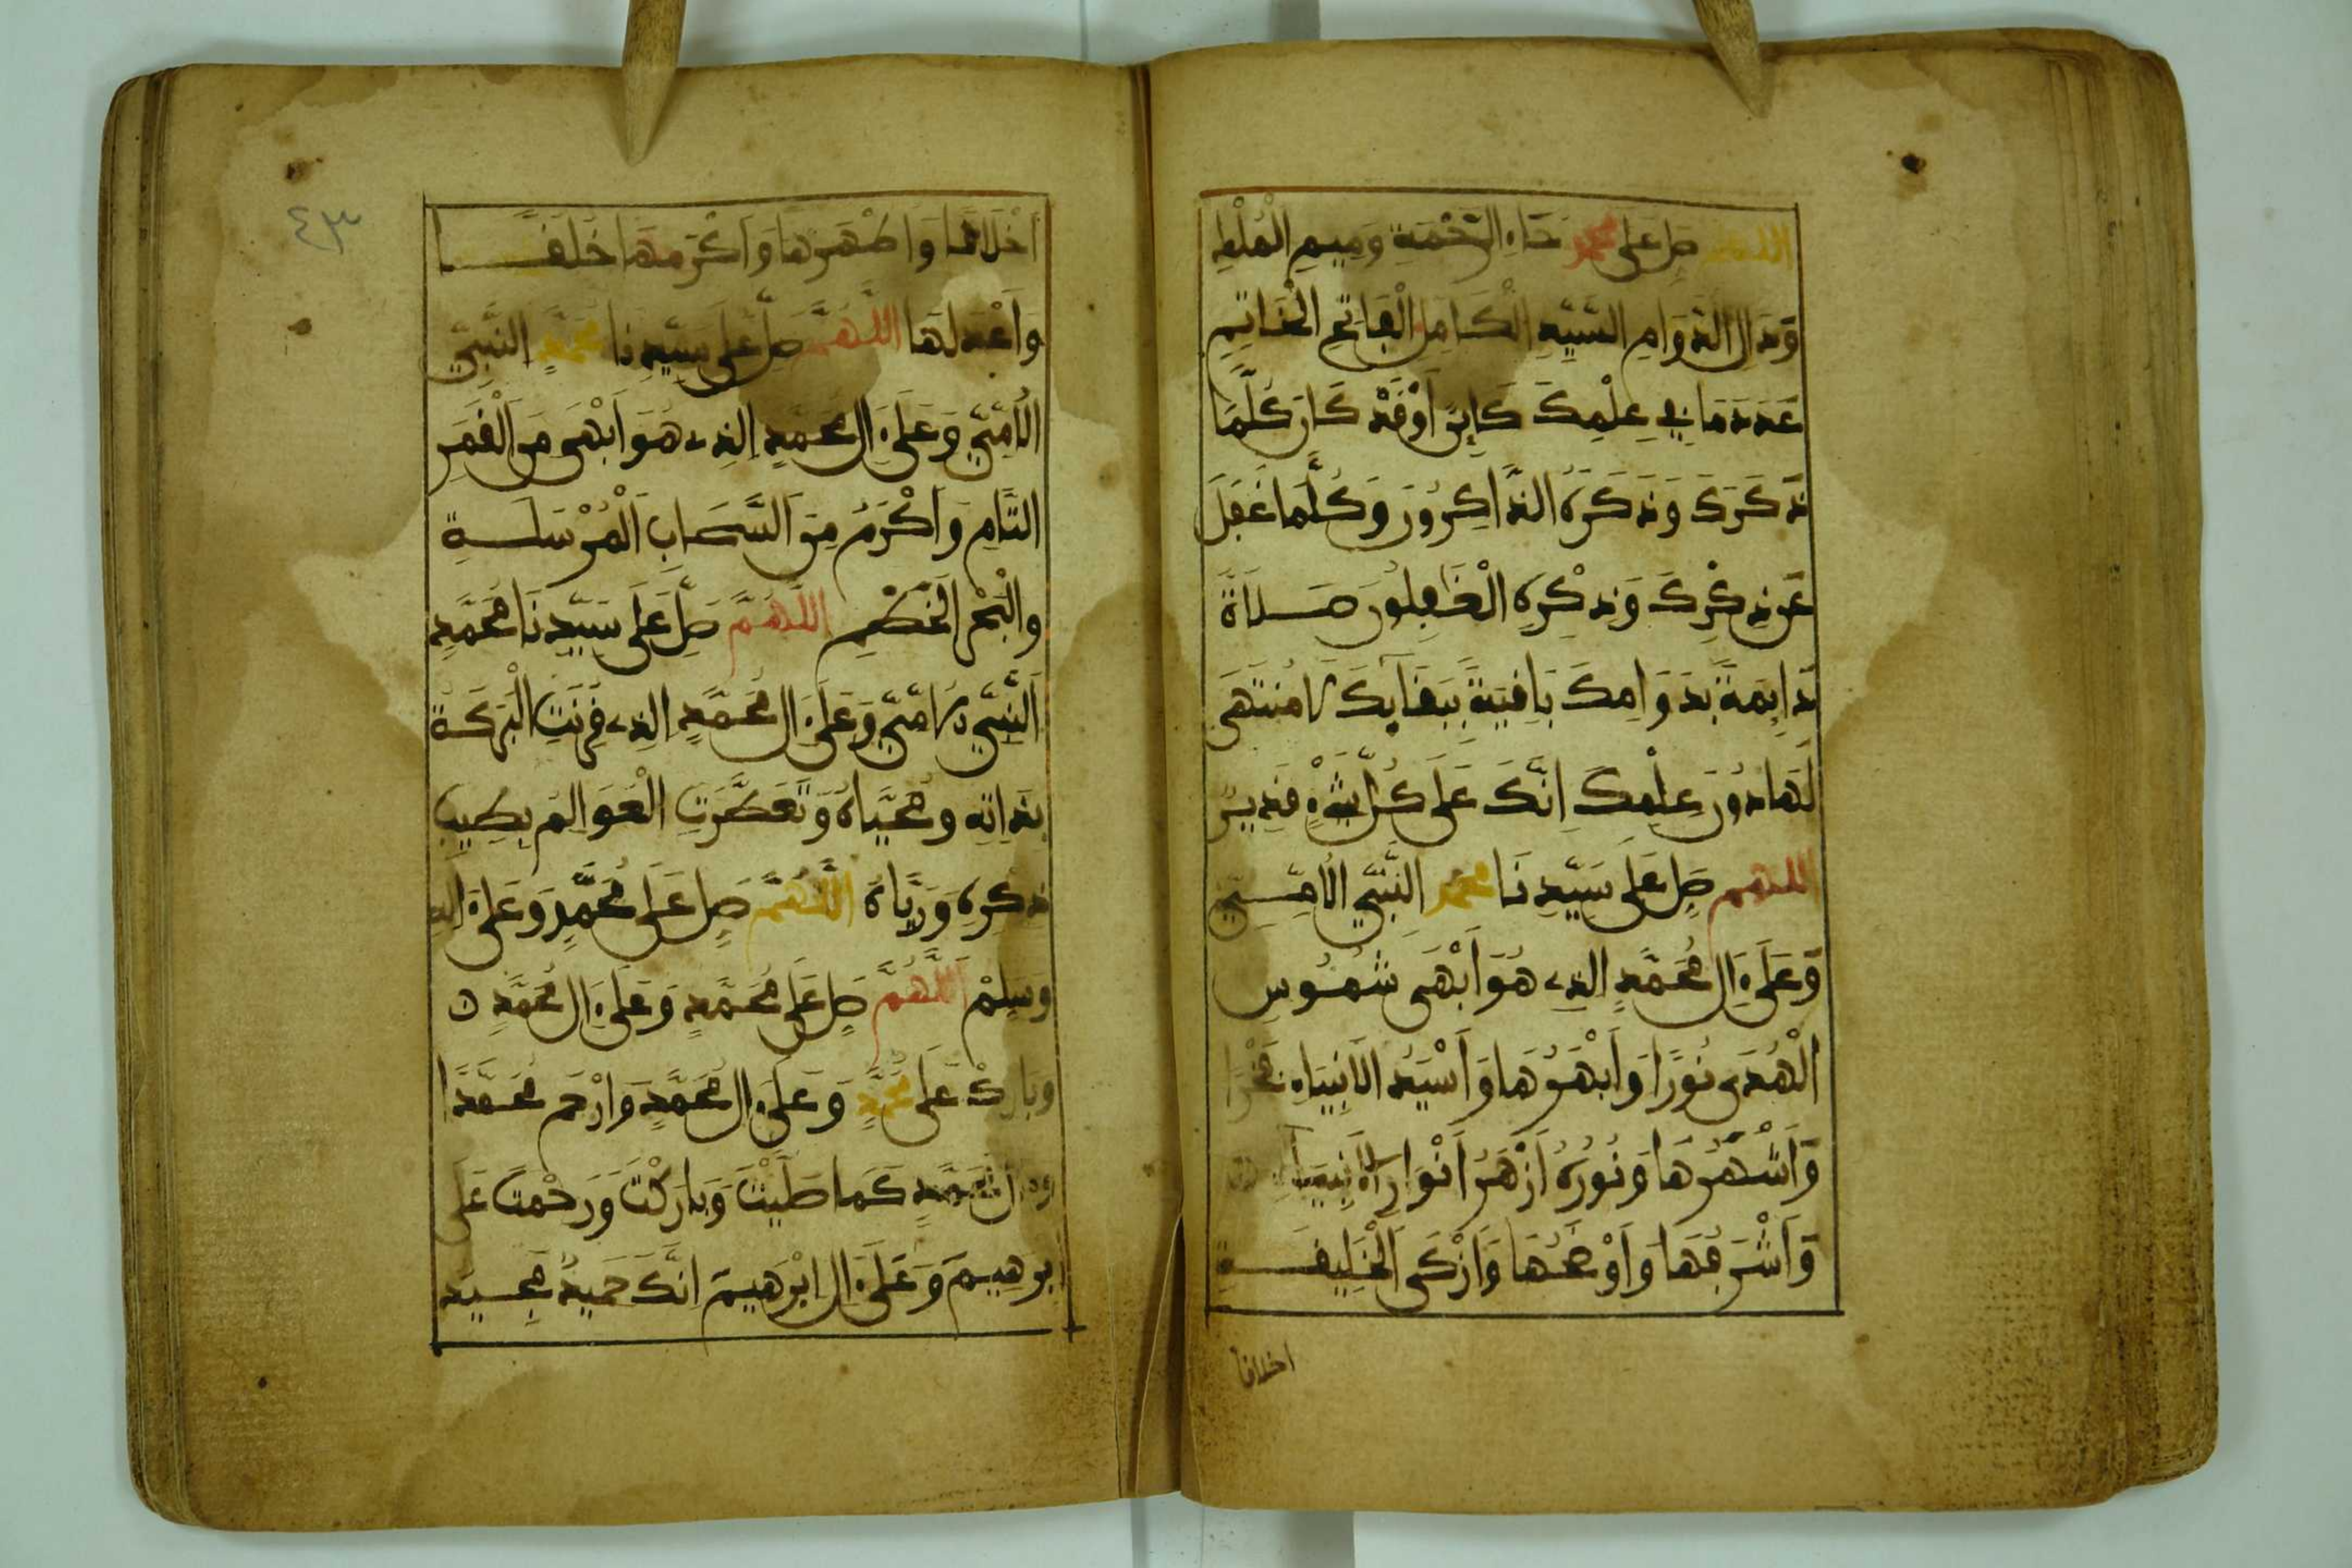 اللهم صل على محمد حاء الرحمة وميم الملك
ودال الدوام السيد الكامل الفاتح الخاتم
عدد ما في علمك كاين او قد كان كلما
ذكرك وذكره الذاكرون وكلما غفل
عن ذكرك وذكره الغافلون صلاة
دايمة بدوامك باقية ببقايك لا منتهى
لها دون علمك انك على كل شيء قدير
اللهم صل على سيدنا محمد النبي الامي
وعلى ءال محمد الذي هو ابهى شموس
الهدى نورا وابهرها واسير الانبياء فخرا
واشهرها ونوره ازهر انوار الانبياء
واشرفها واوضحها وازكى الخليفة
اخلاقا
٤٣
اخلاقا واطهرها واكرمها خلقا
واعدلها اللهم صل على سيدنا محمد النبي
الامي وعلى ءال محمد الذي هو ابهى من القمر
التام واكرم من السحاب المرسلة
والبحر الخطم اللهم صل على سيدنا محمد
النبي الامي وعلى ءال محمد الذي قرنت البركة
بذاته ومحياه وتعطرت العوالم بطيب
ذكره ورياه اللهم صل على محمد وعلى ءاله
وسلم اللهم صل على محمد وعلى ءال محمد
وبارك على محمد وعلى ءال محمد وارحم محمدا
وءال محمد كما صليت وباركت ورحمت على
ابرهيم وعلى ءال ابرهيم انك حميد مجيد